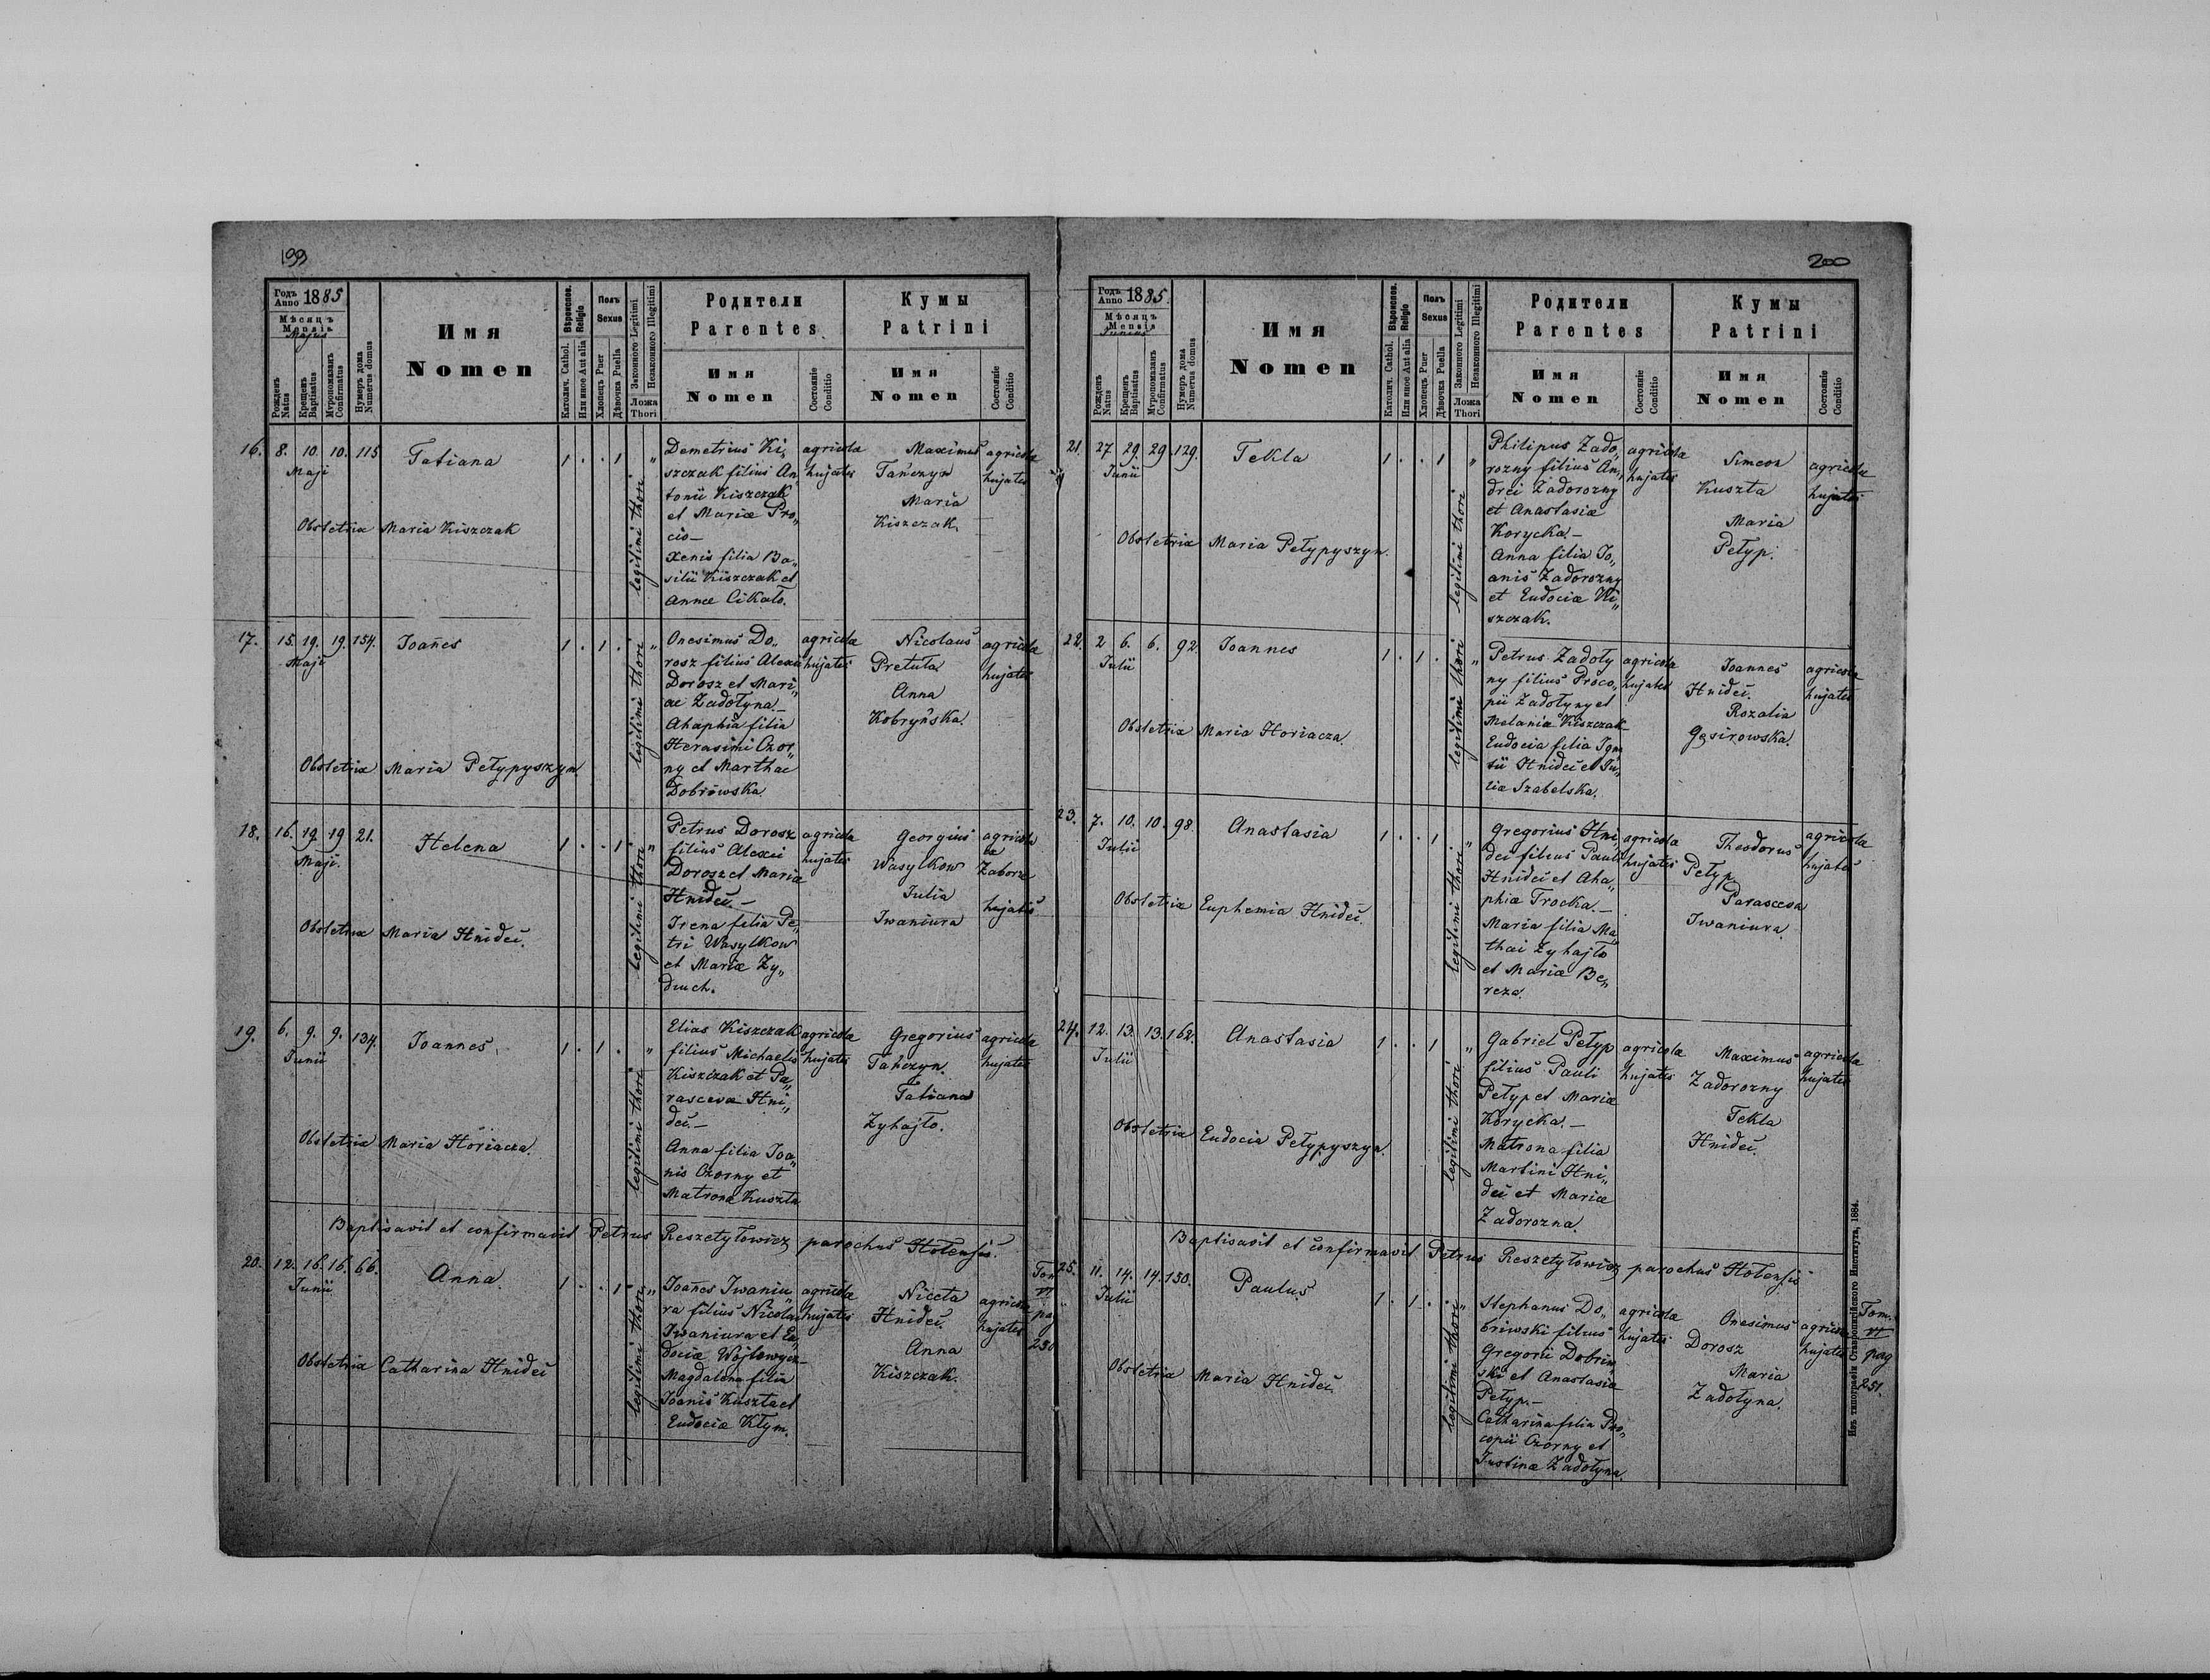 199
Годъ Anno 1885
Мѣсяцъ Mensis
Majus
Рожденъ Natus
Крещенъ Baptisatus
Мѵропомазанъ Confirmatus
Нумеръ дома Numerus domus
Имя Nomen
Вѣроиспов. Religio
Католич. Cathol.
Или иное Aut alia
Полъ Sexus
Хлопецъ Puer
Дѣвочка Puella
Законного Legitimi
Незаконного Illegitimi
Ложа Thori
Родители Parentes
Имя Nomen
Состояніе Conditio
Кумы Patrini
Имя Nomen
Состояніе Conditio
16. 8. 10. 10. 115 Tatiana 1 . . 1 "
Maji
Obstetrix Maria Kiszczak
legitimi thori
Demetrius Ki„
szczak filius An
tonii Kiszczak
et Mariæ Pro„
cio—
Xenis filia Ba„
silii Kiszczak et
Annæ Cikało.
agricolæ
hujates
Maximus
Tańczyn
Maria
Kiszczak.
agricolæ
hujates
17. 15. 19. 19. 154. Joañes 1 . 1 . "
Maji
Obstetrix Maria Petypyszyn
legitimi thori
Onesimus Do„
rosz filius Alexii
Dorosz et Mari„
ae Zadołyna.—
Ahaphia filia
Herasimi Czor„
ny et Marthae
Dobrowska
agricolæ
hujates
Nicolaus
Pretuła
Anna
Kobryńska.
agricolæ
hujates
18. 16. 19. 19 21. Helena 1 . . 1 "
Maji.
Obstetrix Maria Hnideć.
legitimi thori
Petrus Dorosz
filius Alexii
Dorosz et Mariæ
Hnideć.—
Irena filia Pe„
tri Wasylkow
et Mariæ Zy„
druch.
agricolæ
hujates
Georgius
Wasylkow
Julia
Iwaniura
agricola
ex
Zaborze
hujatis
19. 6. 9. 9. 134. Joannes 1 . 1 . "
Junii
Obstetrix Maria Horiacza.
legitimi thori
Elias Kiszczak
filius Michaelis
Kiszczak et Pa„
rascevæ Hni„
deć.—
Anna filia Joa„
nis Czorny et
Matronæ Kuszta
agricolæ
hujates
Gregorius
Tańczyn.
Tatiana
Zyhajło.
agricolæ
hujates
Baptisavit et confirmavit Petrus Reszetyłowicz parochus Hołensis.
20. 12. 16. 16. 66. Anna. 1 . . 1 "
Junii
Obstetrix Catharina Hnideć
legitimi thori
Joañes Iwaniu„
ra filius Nicolai
Iwaniura et Eu„
dociæ Wojtowycz—
Magdalena filia
Joanis Kuszta et
Eudociæ Kłym.
agricolæ
hujates
Niceta
Hnideć.
Anna
Kiszczak.
agricolæ
hujates
Tom
VI
pag
250
200
Годъ Anno 1885.
Мѣсяцъ Mensis
Junius
Рожденъ Natus
Крещенъ Baptisatus
Мѵропомазанъ Confirmatus
Нумеръ дома Numerus domus
Имя Nomen
Вѣроиспов. Religio
Католич. Cathol.
Или иное Aut alia
Полъ Sexus
Хлопецъ Puer
Дѣвочка Puella
Законного Legitimi
Незаконного Illegitimi
Ложа Thori
Родители Parentes
Имя Nomen
Состояніе Conditio
Кумы Patrini
Имя Nomen
Состояніе Conditio
21. 27 29. 29. 129. Tekla 1 . . 1 "
Junii
Obstetrix Maria Petypyszyn.
legitimi thori
Philipus Zado„
rozny filius An„
drei Zadorozny
et Anastasiæ
Korycka.—
Anna filia Jo„
anis Zadorozny
et Eudociæ Ki„
szczak.
agricolæ
hujates
Simeon
Kuszta
Maria
Petyp.
agricolæ
hujates
22. 2 6. 6. 92. Joannes 1 . 1 . "
Julii
Obstetrix Maria Horiacza.
legitimi thori
Petrus Zadoły
ny filius Proco„
pii Zadołyny et
Melaniæ Kiszczak
Eudocia filia Igna
tii Hnideć et Ju„
liæ Szabelska.
agricolæ
hujates
Joannes
Hnideć.
Rozalia
Gąsirowska.
agricolæ
hujates
23. 7. 10. 10. 98. Anastasia 1 . . 1 "
Julii
Obstetrix Euphemia Hnideć.
legitimi thori
Gregorius Hni„
deć filius Pauli
Hnideć et Aha„
phiæ Trocka.—
Maria filia Ma
thai Zyhajło
et Mariæ Be„
reza.
agricolæ
hujates
Theodorus
Petyp.
Parasceva
Iwaniura.
agricolæ
hujates
24. 12. 13. 13. 162. Anastasia 1 . . 1 "
Julii
Obstetrix Eudocia Petypyszyn.
legitimi thori
Gabriel Petyp
filius Pauli
Petyp et Mariæ
Korycka.—
Matrona filia
Martini Hni„
deć et Mariæ
Zadorozna.
agricolæ
hujates
Maximus
Zadorozny
Tekla
Hnideć.
agricolæ
hujates
Baptisavit et confirmavit Petrus Reszetyłowicz parochus Hołensis
25. 11. 14. 14. 150. Paulus 1 . 1 . "
Julii
Obstetrix Maria Hnideć.
legitimi thori
Stephanus Do„
briwski filius
Gregorii Dobriw„
ski et Anastasiæ
Petyp.—
Catharina filia Pro„
copii Czorny et
Justinæ Zadołyna.
agricolæ
hujates
Onesimus
Dorosz
Maria
Zadołyna.
agricolæ
hujates
Tom.
VI
pag
251.
Изъ типографіи Ставропигійского Института, 1884.